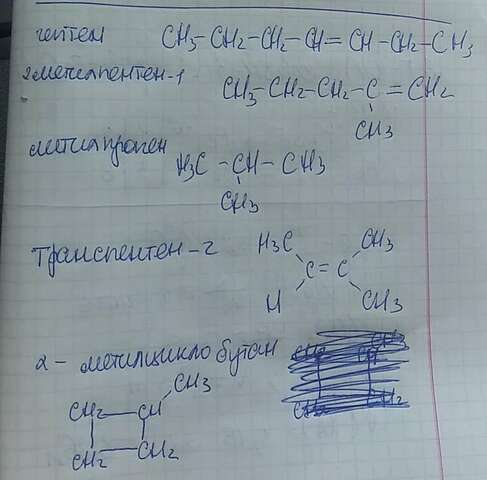 гептен CH3-CH2-CH2-CH=CH-CH2-CH3
2метилпентен-1 CH3-CH2-CH2-C=CH2
CH3
метилпропен H3C-CH-CH3
CH3
Транспентен-2 H3C CH3
C=C
H CH3
2-метилциклобутан
CH3
CH2-CH
CH2-CH2